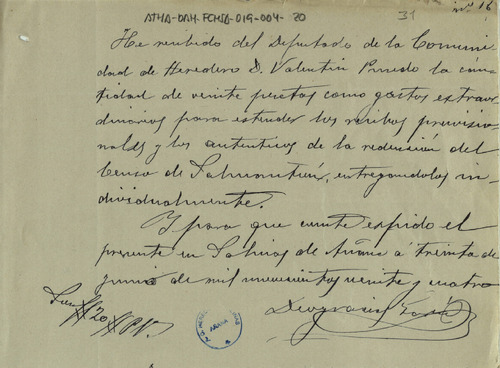 ATHA-DAH-FCHSA-019-004-20
31
nº 16
He recibido del Diputado de la Comuni
dad de Heredero D. Valentín Pinedo la can
tidad de veinte pesetas como gastos extraor
dinarios para estender los recibos provisio
nales y los autenticos de la redensión del
Censo de entregandolos in
dividualmente.
Y para que conste espido el
presente en Salinas de Añana á treinta de
junio de mil novecientos veinte y cuatro
Son 20
Deogracias
AÑANA